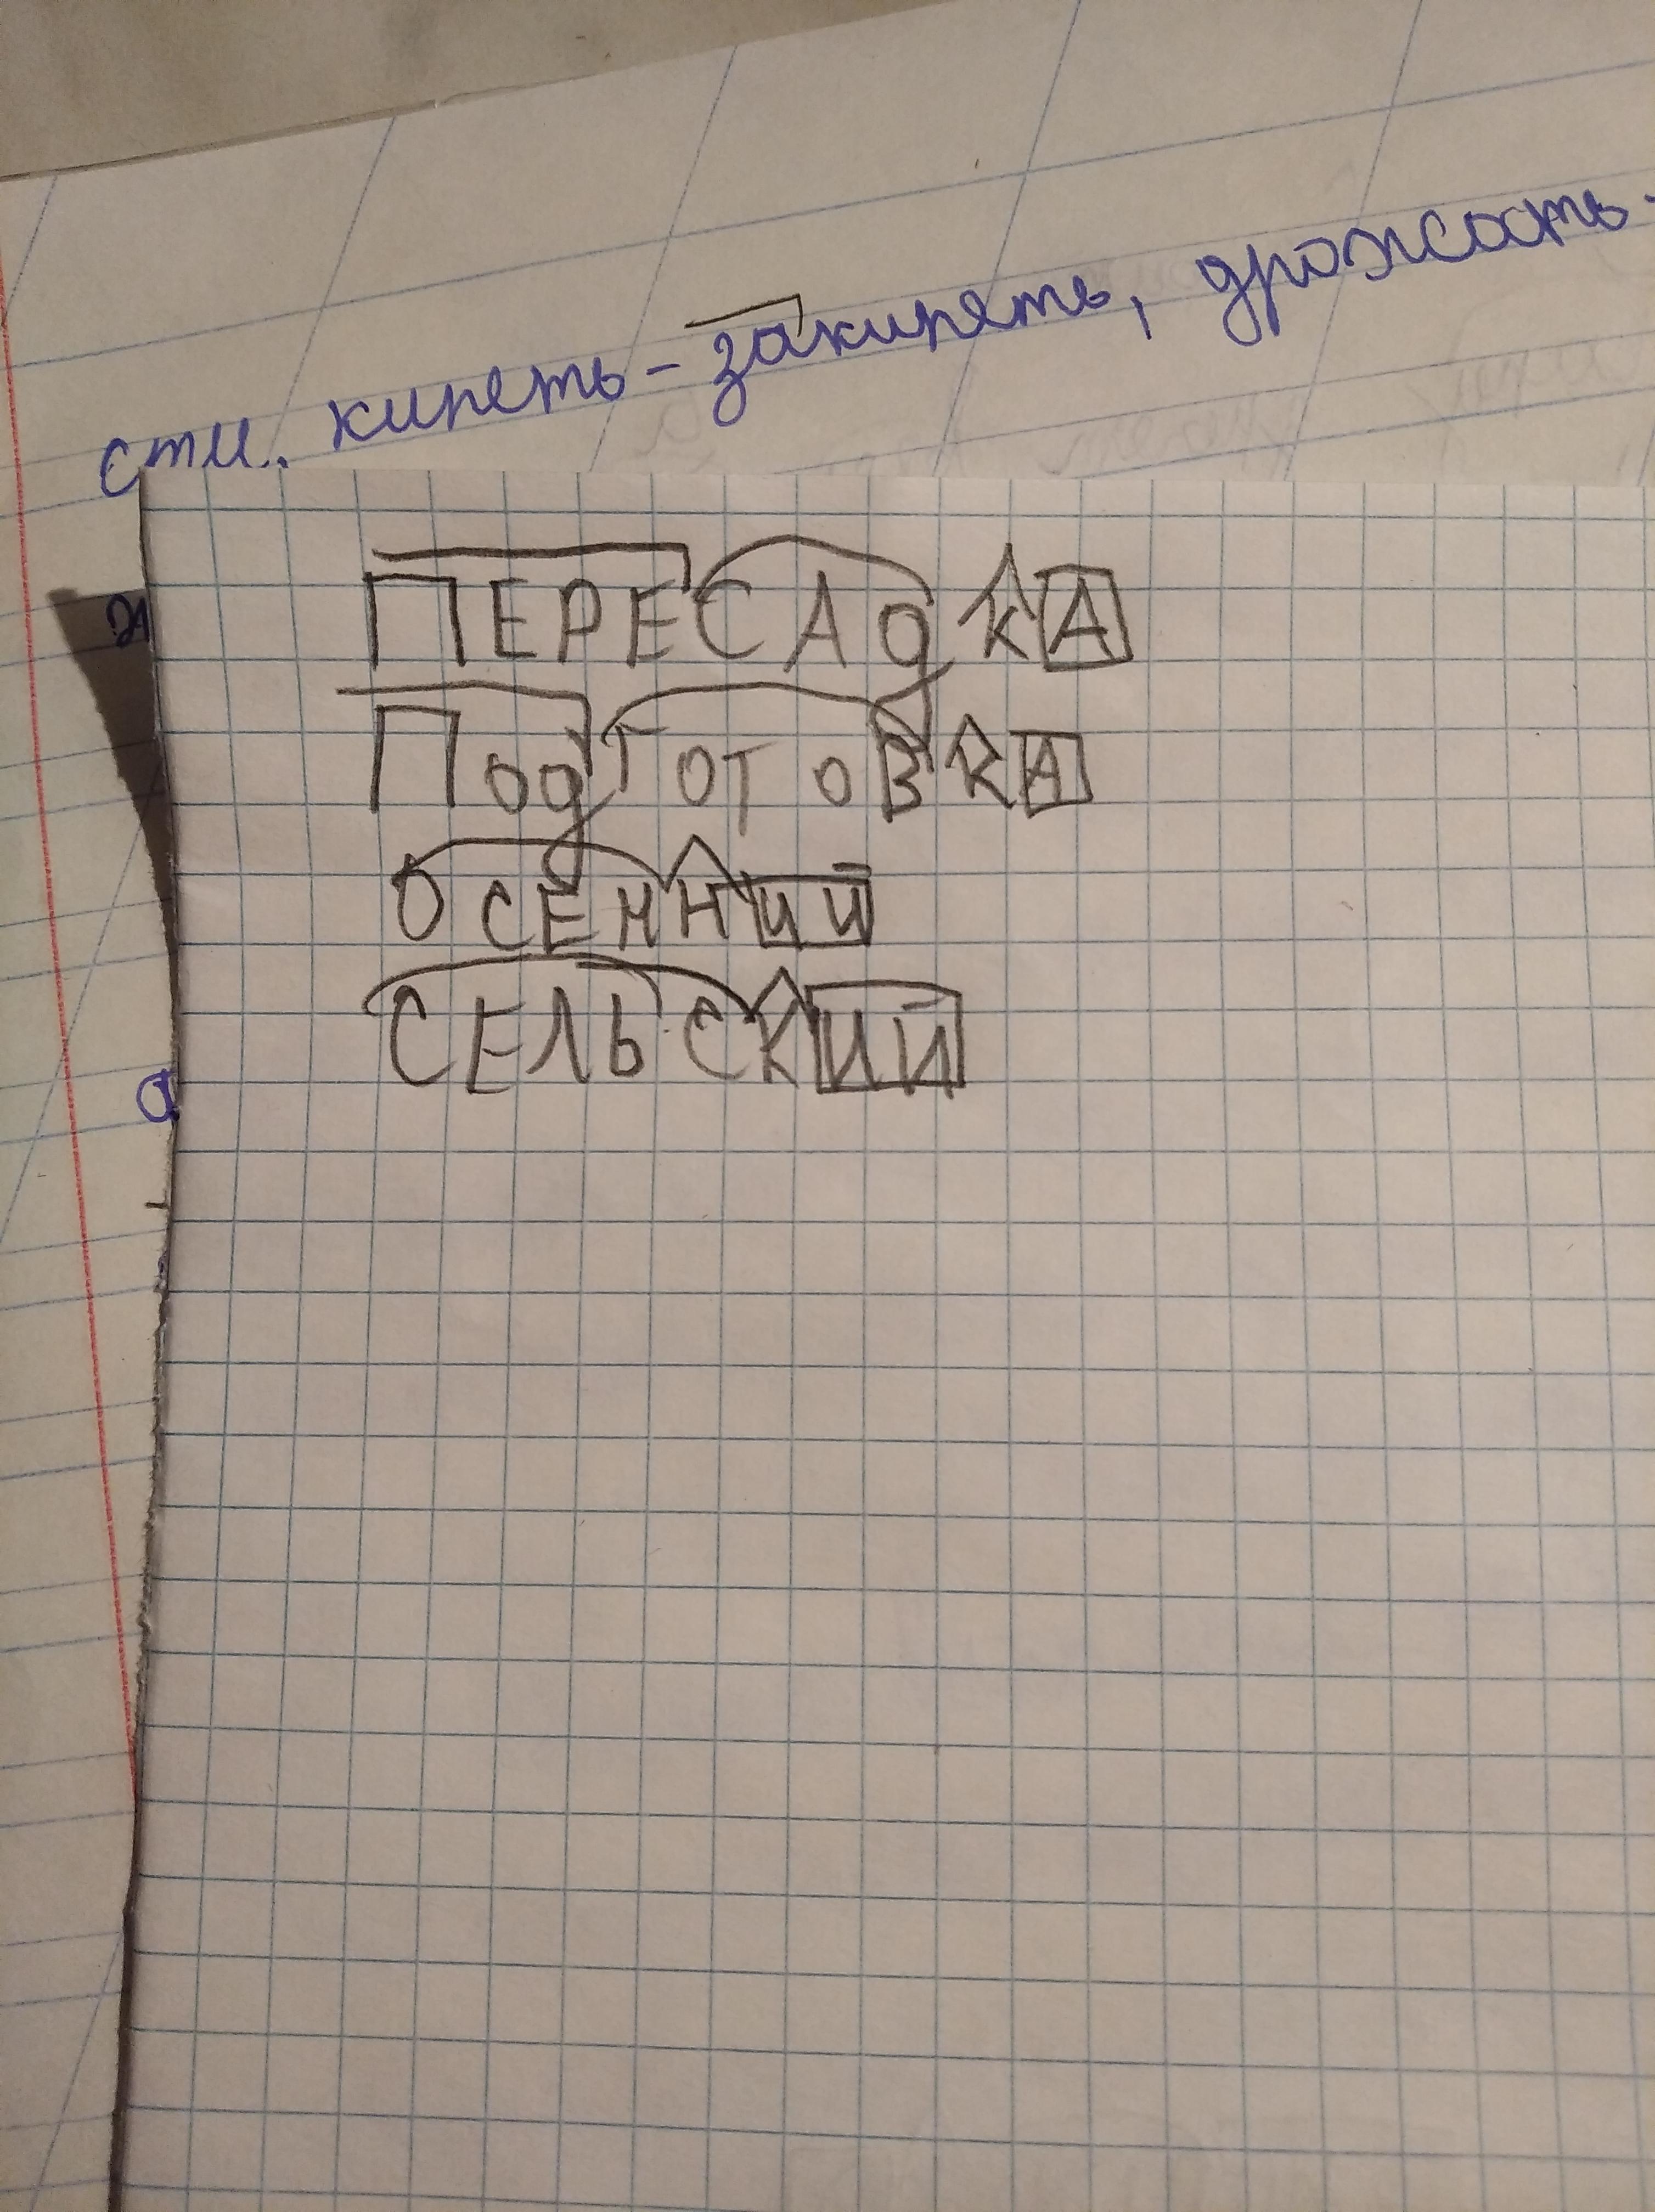 сти. кипеть - закипеть, дрожать -
ПЕРЕСАдКА
ПодГотовКА
ОСЕННИЙ
СЕЛЬСКИЙ
а